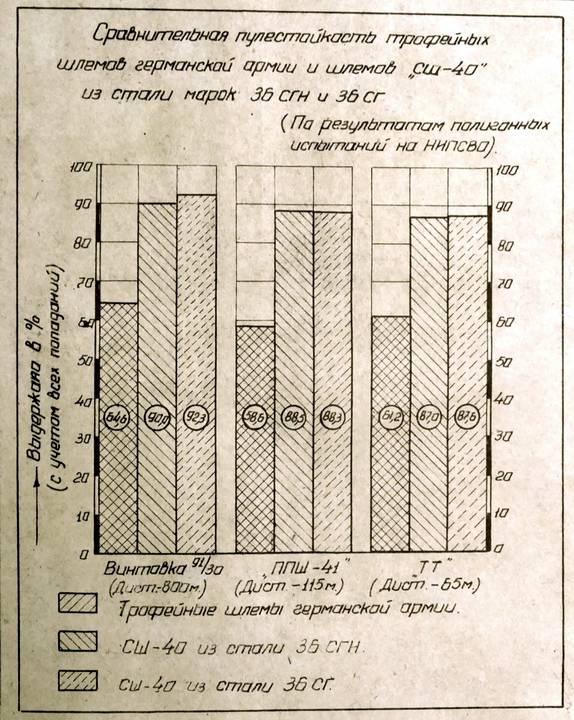 Сравнительная пулестойкость трофейных
шлемов германской армии и шлемов „СШ-40"
из стали марок 36 СГН и 36 СГ
(По результатам полигонных
испытаний на НИПСВО).
Выдержала в %
(с учетом всех попаданий)
100
90
80
70
60
50
40
30
20
10
0
100
90
80
70
60
50
40
30
20
10
0
64,6 90,0 92,3 58,6 88,5 88,3 61,2 87,0 87,6
Винтовка 91/30 „ППШ-41" „ТТ"
(Дист.-800м.) (Дист.-115м.) (Дист.-65м.)
Трофейные шлемы германской армии.
СШ-40 из стали 36 СГН.
СШ-40 из стали 36 СГ.